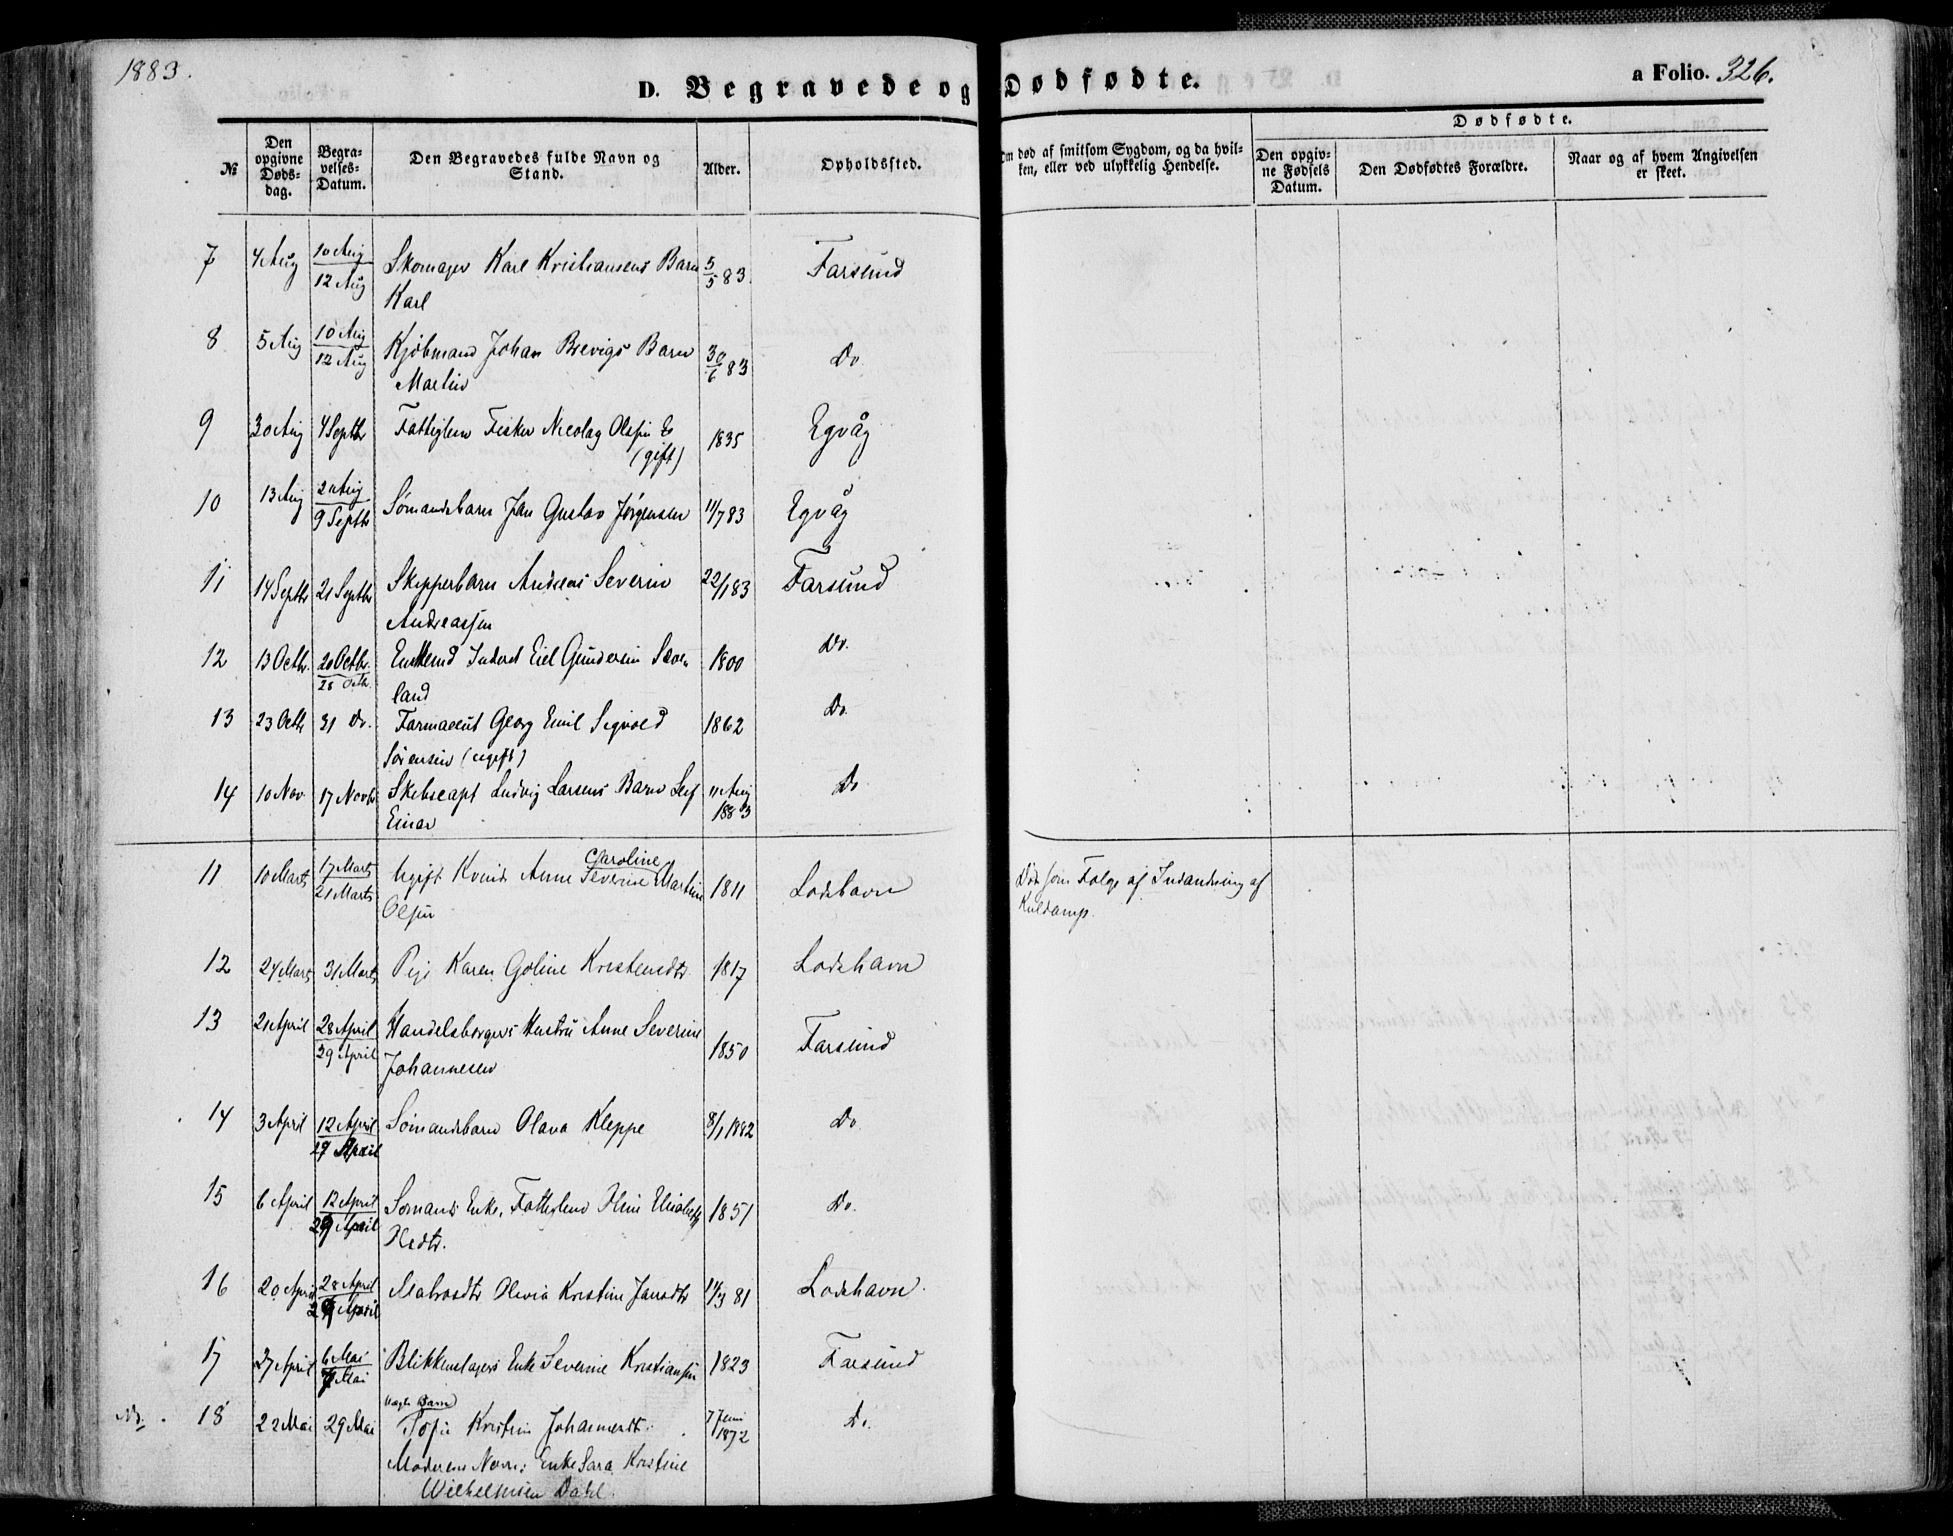 1883.
D. Begravede og Dødfødte.
a Folio. 326.
№
Den opgivne Døds-dag.
Begra-velses-Datum.
Den Begravedes fulde Navn og Stand.
Alder.
Opholdssted.
Om død af smitsom Sygdom, og da hvil-ken, eller ved ulykkelig Hendelse.
Dødfødte.
Den opgiv-ne Fødsels Datum.
Den Dødfødtes Forældre.
Naar og af hvem Angivelsen er skeet.
7 4 Aug 10 Aug 12 Aug Skomager Karl Kristiansens Barn 5/5 83. Farsund
Karl
8 5 Aug 10 Aug 12 Aug Kjøbmand Johan Brevigs Barn 30/6 83 Do.
Martin
9 30 Aug 4 Septbr Fattiglem Fisker Nicolay Olsen E 1835 Egvåg
(gift)
10 13 Aug 20 Aug 9 Septbr Sømandsbarn Jan Gustav Jørgensen 11/7 83 Egvåg
11 14 Septbr 21 Septbr Skipperbarn Andreas Severin 22/1 83 Farsund
Andreassen
12 13 Octbr. 20 Octbr. 28 Octb. Enkemd Inderst Eiel Gundersen Sæve 1800 Do.
land
13 23 Octb 31 Do. Farmaceut Georg Emil Sigvold 1862 Do.
Sørensen (ugift)
14 10 Nov 17 Novbr Skibscapt Ludvig Larsens Barn Leif 11 Aug 1883 Do
Einar
11 10 Marts 17 Marts 21 Marts Ugift Kvinde Anne Severine Caroline Martine 1811 Lodshavn Død som Følge af Indaanding af
Olsen Kuldamp.
12 24 Marts 31 Marts Pige Karen Goline Kristensdtr. 1817 Lodshavn
13 21 April 28 April 29 April Handelsborgers Hustru Anne Severine 1850 Farsund
Johannesen
14 3 April 12 April 29 April Sømandsbarn Olava Kleppe 8/1 1882 Do
15 6 April 12 April 29 April Sømands Enke, Fattiglem Oline Elisabeth 1851 Do.
Olsdtr.
16 20 April 28 April 29 April Matrosdtr Olevia Kristine Jansdtr 11/3 81 Lodshavn.
17 27 April 6 Mai 7 Mai Blikkenslagers Enke Severine Kristiansen 1823 Farsund
Nb. 18 22 Mai 29 Mai Uægte Barn 7 Juni 1872 Do.
Sofie Kristine Johannesdt.
Moderens Navn: Enke Sara Kristine
Wilhelmsen Dahl.